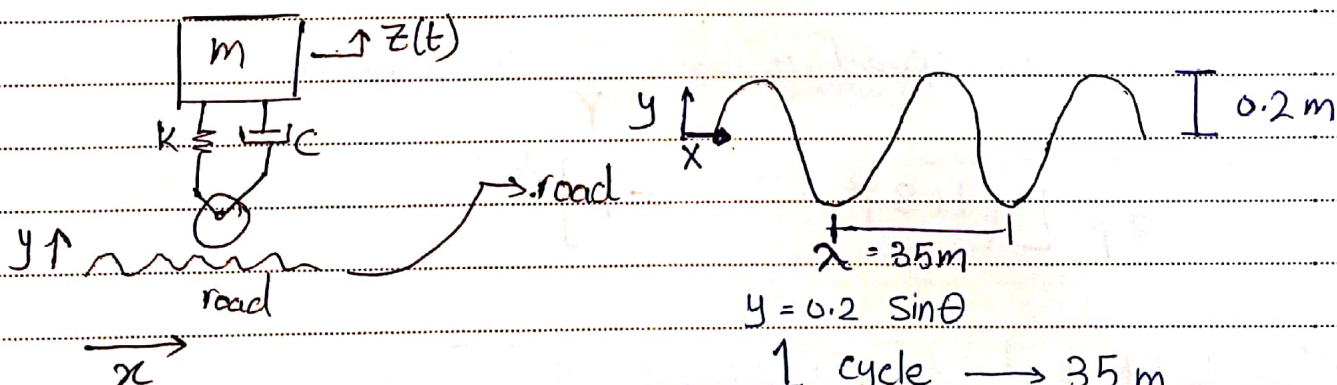 m
Z(t)
K
C
y
road
road
x
y
x
0.2 m
λ = 35m
y = 0.2 Sinθ
1 cycle → 35 m